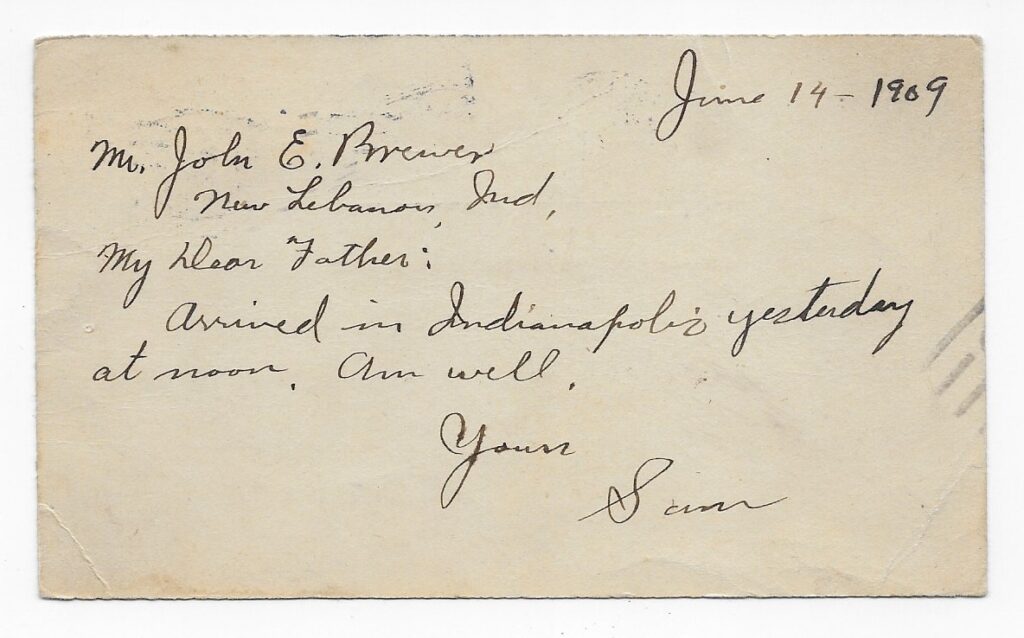 June 14 - 1909
Mr. John E. Brewer
New Lebanon, Ind.
My Dear Father:
Arrived in Indianapolis yesterday
at noon. Am well.
Yours
Sam